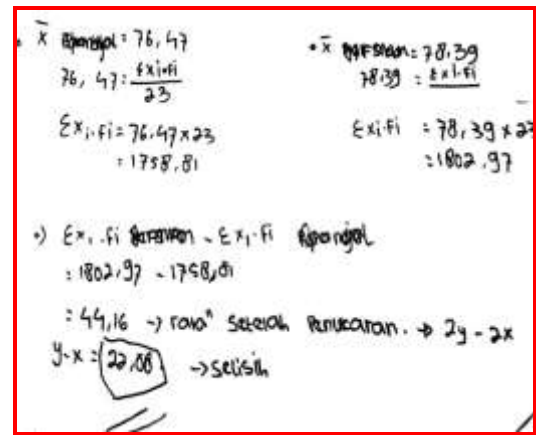 • x̄ = 76,47
76,47 = Σxi·fi / 23
Σxi·fi = 76,47 x 23
: 1758,81
• x̄ = 78,39
78,39 = Σxi·fi
Σxi·fi = 78,39 x 23
= 1802,97
•) Σxi·fi - Σxi·fi
: 1802,97 - 1758,81
: 44,16 → rata" setelah Penukaran. → 2y - 2x
y-x = 22,08 → selisih